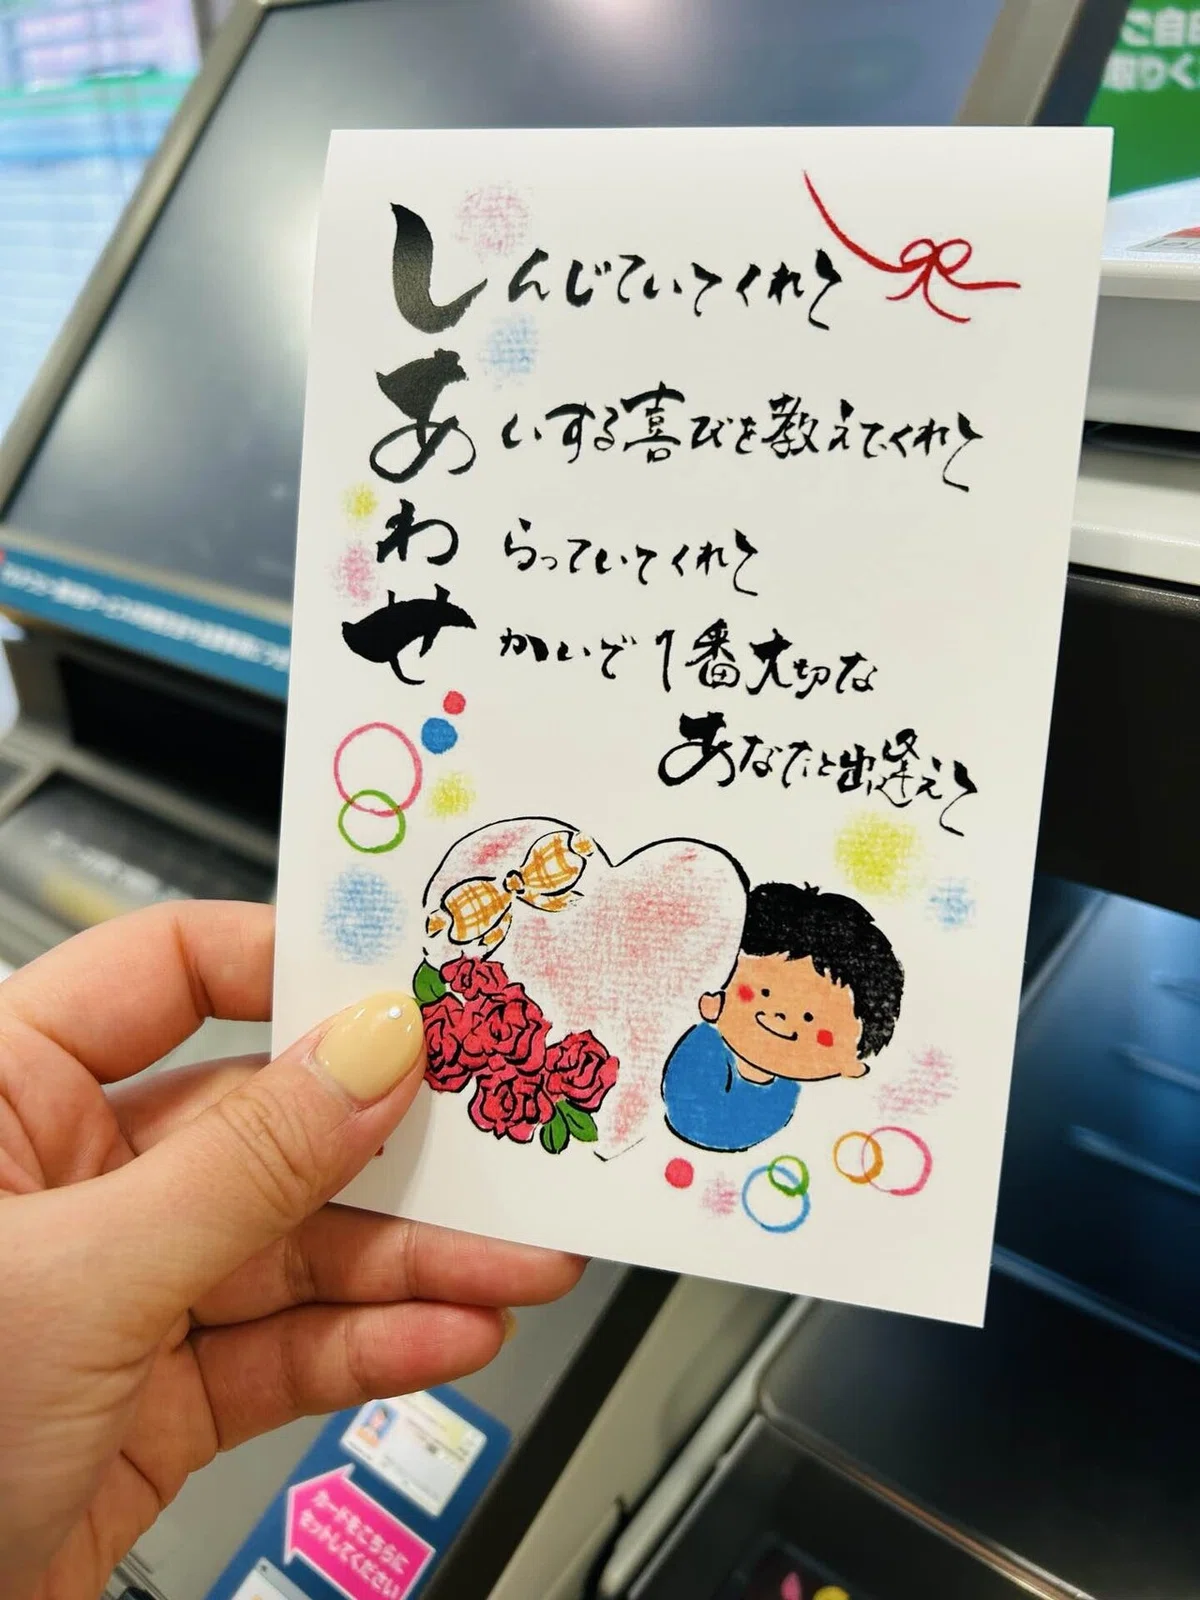 しんじていてくれて
あいする喜びを教えてくれて
わらっていてくれて
せかいで1番大切な
あなたと出逢えて
ご自由
取りく
カードをこちらに
セットしてください